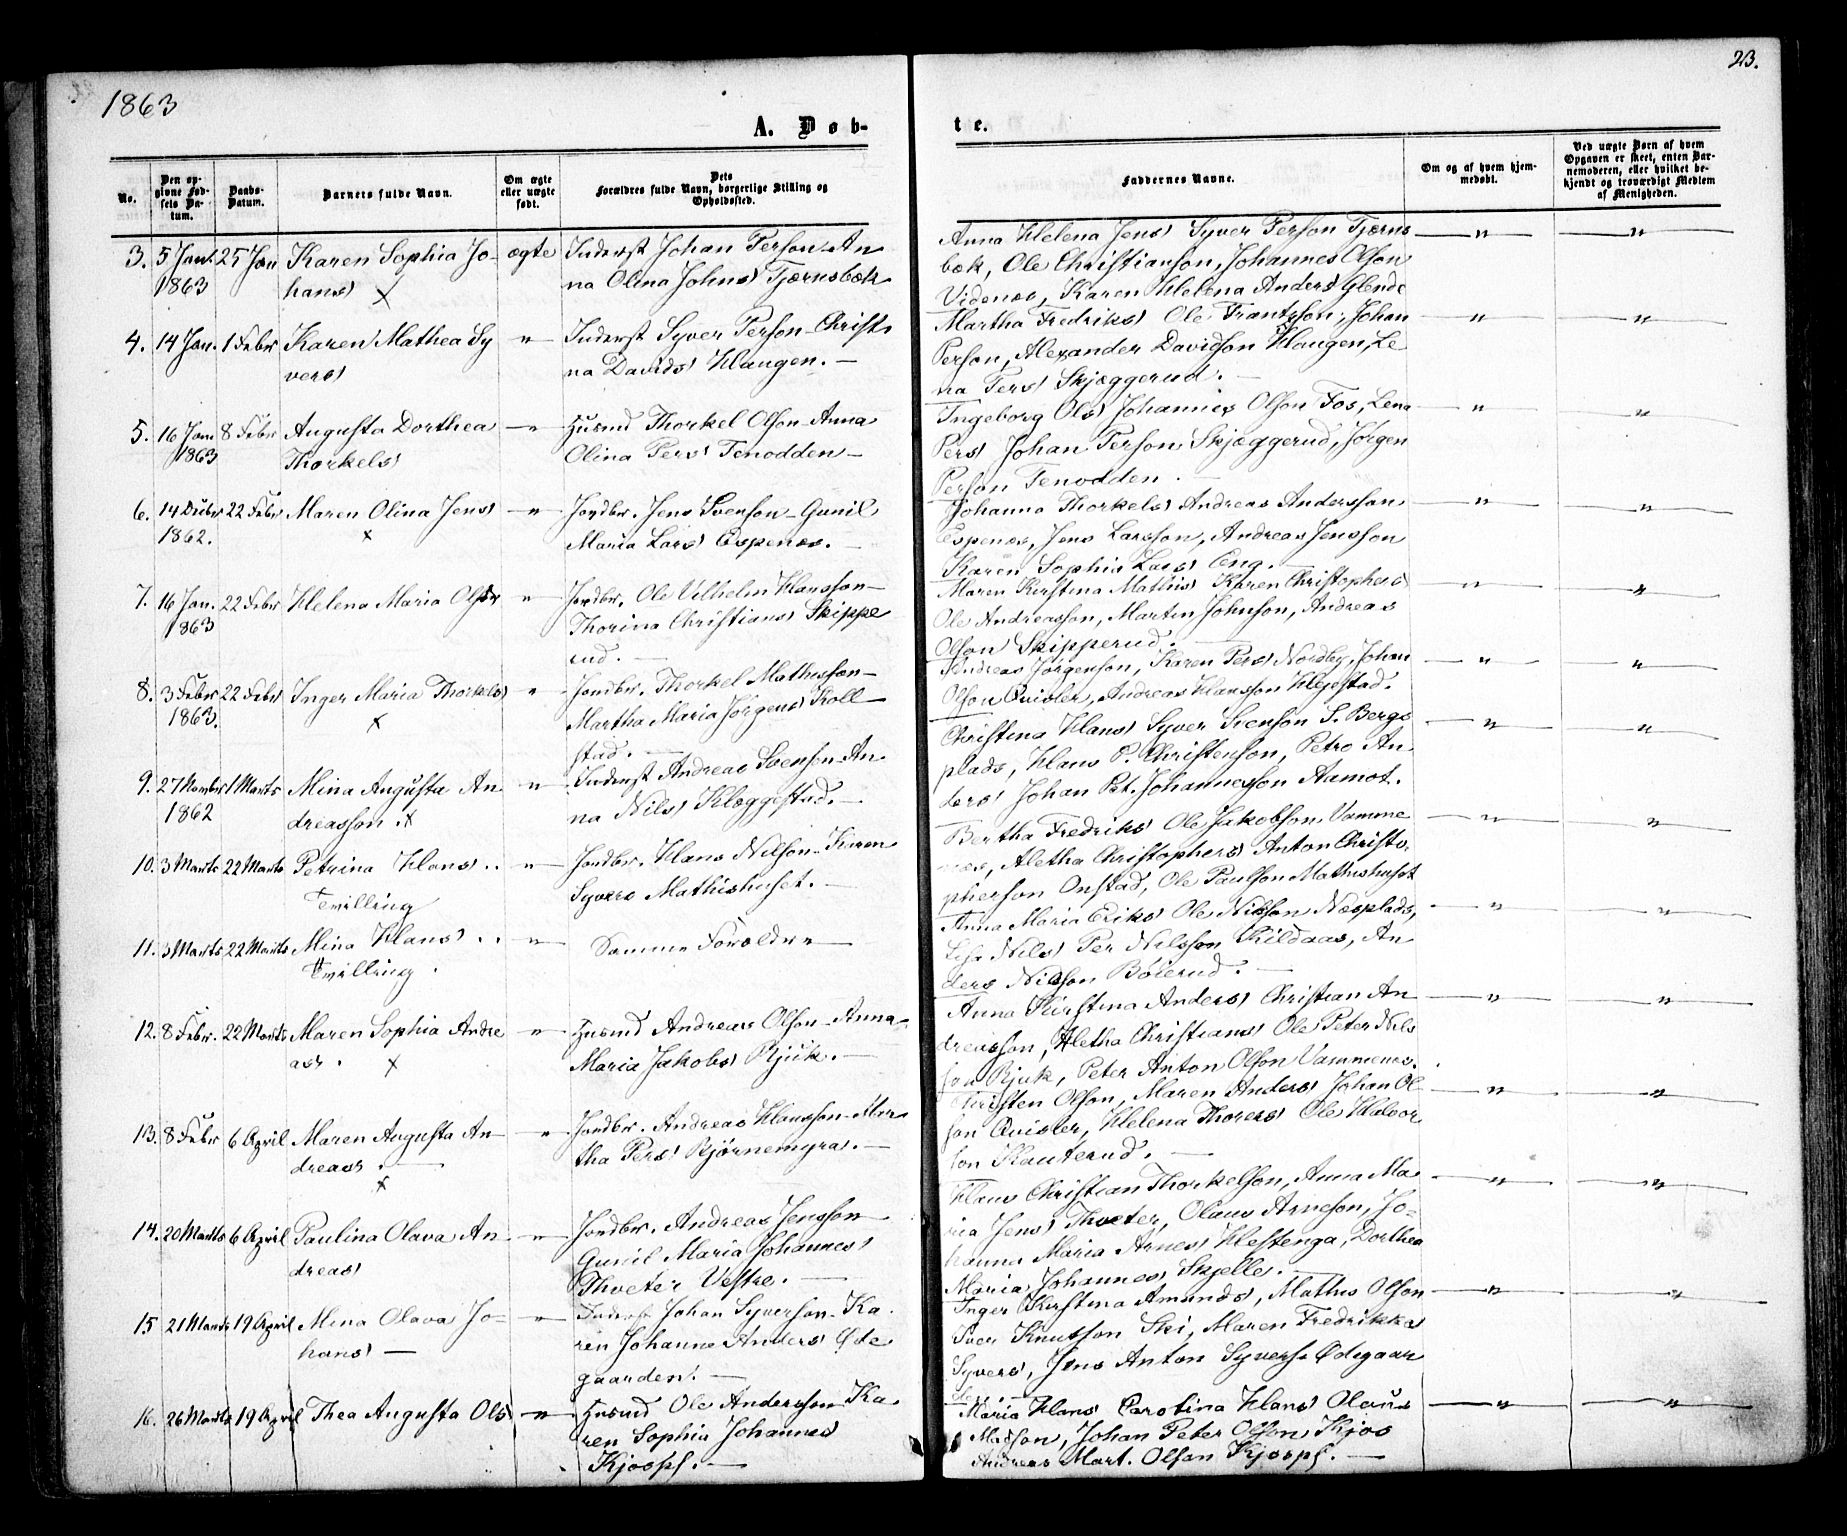 1863
23.
A. Døb-
te.
No.
Den op-
givne Fød-
sels Da-
tum.
Daabs-
Datum.
Barnets fulde Navn.
Om ægte
eller uægte
født.
Dets
Forældres fulde Navn, borgerlige Stilling og
Opholdssted.
Faddernes Navne.
Om og af hvem hjem-
medøbt.
Ved uægte Børn af hvem
Opgaven er skeet, enten Bar-
nemoderen, eller hvilket be-
kjendt og troværdigt Medlem
af Menigheden.
3. 5 Jan. 25 Jan Karen Sophia Jo- ægte Inderst Johan Person - An
1863 hans) x na Olina Johns) Tjærnsbæk
Anna Helena Jens) Syver Person Tjærns - " - - " -
bæk, Ole Christianson, Johannes Olson
Videnæs, Karen Helena Anders) Glende
4. 14 Jan. 1 Febr Karen Mathea Sy - " - Inderst Syver Person - Christi
vers) na Davids) Haugen. -
Martha Fredriks) Ole Frantsson, Johan - " - - " -
Person, Alexander Davidson Haugen, Le
na Pers) Skjæggerud. -
5. 16 Jan 8 Febr Augusta Dorthea - " - Husmd Thorkel Olson - Anna
1863 Thorkels) Olina Pers) Tenodden -
Ingeborg Ols) Johannes Olson Fos, Lena - " - - " -
Pers) Johan Person Skjæggerud, Jørgen
Person Tenodden. -
6. 14 Decbr 22 Febr Maren Olina Jens) - " - Jordbr. Jens Svenson - Gunil
1862. x Maria Lars) Espenæs. -
Johanna Thorkels) Andreas Andersson - " - - " -
Espenæs, Jens Larsson, Andreas Jensson
Karen Sophia Lars) Eng. -
7. 16 Jan. 22 Febr Helena Maria Ols) - " - Jordbr. Ole Vilhelm Hansson -
1863 Thorina Christians) Skippe
rud. -
Maren Kirstina Mathis) Karen Christophers) - " - - " -
Ole Andreasson, Martin Johnson, Andreas
Olson Skipperud. -
8. 3 Febr 22 Febr Inger Maria Thorkels) - " - Jordbr. Thorkel Mathisson -
1863. x Martha Maria Jørgens) Koll
stad. -
Andreas Jørgenson, Karen Pers) Nordby, Johan - " - - " -
Olson Qvisler, Andreas Hansson Hejestad.
9. 27 Novbr 1 Marts Mina Augusta An - " - Inderst Andreas Svenson - An
1862 dreasson. x na Nils) Klæggestad. -
Christina Hans) Syver Svenson S. Bergs - " - - " -
plads, Hans P. Christenson, Petro An
ders) Johan Pet. Johannesson Aamot.
10. 3 Marts 22 Marts Petrina Hans) . . - " - Jordbr. Hans Nilson - Karen
Tvilling Syvers Mathishuset. -
Bertha Fredriks) Ole Jakobson Vamme - " - - " -
næs, Aletha Christophers) Anton Christo
pherson Onstad, Ole Paulson Mathishuset
11. 3 Marts 22 Marts Mina Hans) . . - " - Samme Forældre -
Tvilling .
Anna Maria Eriks) Ole Nilsson Næsplads, - " - - " -
Nils) Per Nilsson Kildaas, An
ders Nilsson Bøierud. -
12. 8 Febr. 22 Marts Maren Sophia Andre - " - Husmd Andreas Olson - Anna
as) . x Maria Jakobs) Rjuk. -
Anna Kirstina Anders) Christian An - " - - " -
dreasson, Aletha Christians) Ole Peter Nils
son Rjuk, Peter Anton Olson Vammenæs.
13. 8 Febr 6 April Maren Augusta An - " - Jordbr. Andreas Hansson - Mar
dreas) . - x tha Pers) Bjørnemyra. -
Christen Olson, Maren Anders) Johan Ol - " - - " -
son Qvisler, Helena Thorers) Ole Halvor
son Kauterud. -
14. 20 Marts 6 April Paulina Olava An - " - Jordbr. Andreas Jensson
dreas) Gunil Maria Johannes)
Thveter Vestre. -
Hans Christian Thorkelson, Anna Ma - " - - " -
ria Jens) Thveter, Olaus Arneson, Jo-
hanna Maria Arnes) Hestenga, Dorthea
Maria Johannes) Skjelle. -
15 21 Marts 19 April Mina Olava Jo- - " - Inderst Johan Syverson - Ka
hans) - ren Johanne Anders) Øde
gaarden. -
Inger Kirstina Amunds), Mathis Olson - " - - " -
Iver Knutson Ski, Maren Fredrikka
Syvers), Jens Anton Syvers. Ødegaar
den. -
16. 26 Marts 19 April Thea Augusta Ols) - " - Husmd Ole Andersson - Ka
ren Sophia Johannes)
Kjospl. -
Maria Hans) Carolina Hans) Olaus - " - - " -
Madson, Johan Peter Olson Kjos
Andreas Mart. Olson Kjospl. -